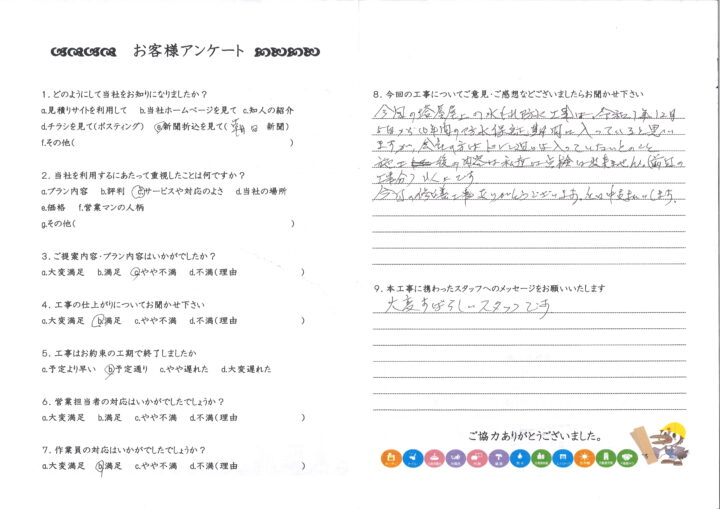 お客様アンケート
1．どのようにして当社をお知りになりましたか？
a.見積りサイトを利用して　b.当社ホームページを見て　c.知人の紹介
d.チラシを見て(ポスティング)　e.新聞折込を見て(朝日 新聞)
f.その他(　)
2．当社を利用するにあたって重視したことは何ですか？
a.プラン内容　b.評判　c.サービスや対応のよさ　d.当社の場所
e.価格　f.営業マンの人柄
g.その他(　)
3．ご提案内容・プラン内容はいかがでしたか？
a.大変満足　b.満足　c.やや不満　d.不満(理由　)
4．工事の仕上がりについてお聞かせ下さい
a.大変満足　b.満足　c.やや不満　d.不満(理由　)
5．工事はお約束の工期で終了しましたか
a.予定より早い　b.予定通り　c.やや遅れた　d.大変遅れた
6．営業担当者の対応はいかがでしたでしょうか？
a.大変満足　b.満足　c.やや不満　d.不満(理由　)
7．作業員の対応はいかがでしたでしょうか？
a.大変満足　b.満足　c.やや不満　d.不満(理由　)
8．今回の工事についてご意見・ご感想などございましたらお聞かせ下さい
今回の塔屋屋上の水もれ防水工事は、令和7年12月
5日から10年間の防水保証期間に入っていると思い
ますが、
施工後の内容は私達は点検は出来ません
工事分)
今回の修繕工事ありがとうございます。
9．本工事に携わったスタッフへのメッセージをお願いいたします
大変すばらしいスタッフです
ご協力ありがとうございました。